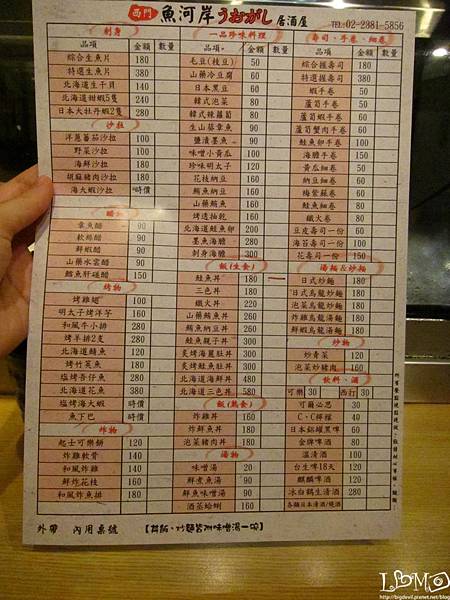 西門 魚河岸うおがし居酒屋 TEL:02-2381-5856
刺身
品項 金額 數量
綜合生魚片 180
特選生魚片 380
北海道生干貝 140
北海道甜蝦5隻 240
日本大牡丹蝦2隻 280
沙拉
洋蔥蕃茄沙拉 100
野菜沙拉 100
海鮮沙拉 180
胡麻豬肉沙拉 180
海大蝦沙拉 時價
品項 金額 數量
章魚醋 90
軟絲醋 90
鮮蝦醋 90
山藥水雲醋 90
鱈魚肝磋醋 150
烤物
烤雞翅 100
明太子烤洋芋 160
和風牛小排 280
烤羊排2隻 280
北海道鯖魚 120
烤竹筴魚 180
塩烤香仔魚 280
北海道花魚 380
塩烤海大蝦 時價
魚下巴 時價
炸物
起士可樂餅 120
炸雞軟骨 140
和風炸雞 140
鮮炸花枝 160
和風炸魚排 180
一品珍味料理
品項 金額 數量
毛豆(枝豆) 50
山藥冷豆腐 60
日本黑豆 60
韓式泡菜 80
韓式辣蘿蔔 80
生山葵章魚 80
鹽漬墨魚 90
味噌小黃瓜 100
珍味明太子 120
花枝納豆 160
鮪魚納豆 160
山藥鮪魚 160
烤透抽乾 160
北海道鮭魚卵 200
墨魚海膽 280
刺身海膽 300
飯(生食)
鮭魚丼 180
三色丼 180
鐵火丼 220
山藥鮪魚丼 260
鮪魚納豆丼 260
鮭魚親子丼 300
炙烤海麗肚丼 300
炙烤鮭魚肚丼 300
北海道海鮮丼 480
北海道三色丼 580
飯(熟食)
炸雞丼 160
炸鮮魚丼 180
泡菜豬肉丼 180
湯物
味噌湯 20
鮮煮魚湯 50
鮮魚味噌湯 60
酒蒸蛤蜊 160
壽司、手卷、細卷
品項 金額 數量
綜合握壽司 180
特選握壽司 380
蝦手卷 60
蘆筍手卷 60
蘆筍蝦手卷 60
蘆筍蟹肉手卷 60
鮭魚卵手卷 100
海膽手卷 150
黃瓜細卷 50
納豆細卷 60
梅紫蘇卷 60
鮭魚細卷 80
鐵火卷 80
豆皮壽司一份 60
海苔壽司一份 100
花壽司一份 150
湯麵&炒麵
日式炒麵 180
日式烏龍炒麵 180
泡菜烏龍炒麵 180
炸雞烏龍湯麵 180
鮮蝦烏龍湯麵 180
炒物
炒青菜 120
泡菜炒豬肉 160
飲料、酒
可樂 30 西打 30
可爾必思 30
C·C檸檬 40
日本鋁罐黑啤 60
金牌啤酒 80
溫清酒 100
台生啤18天 120
麒麟啤酒 120
冰白鶴生清酒 280
各類日本清酒/燒酒
外帶 內用桌號 【丼飯、炒麵皆附味噌湯一碗】
LBMO
http://bigdevil.pixnet.net/blog